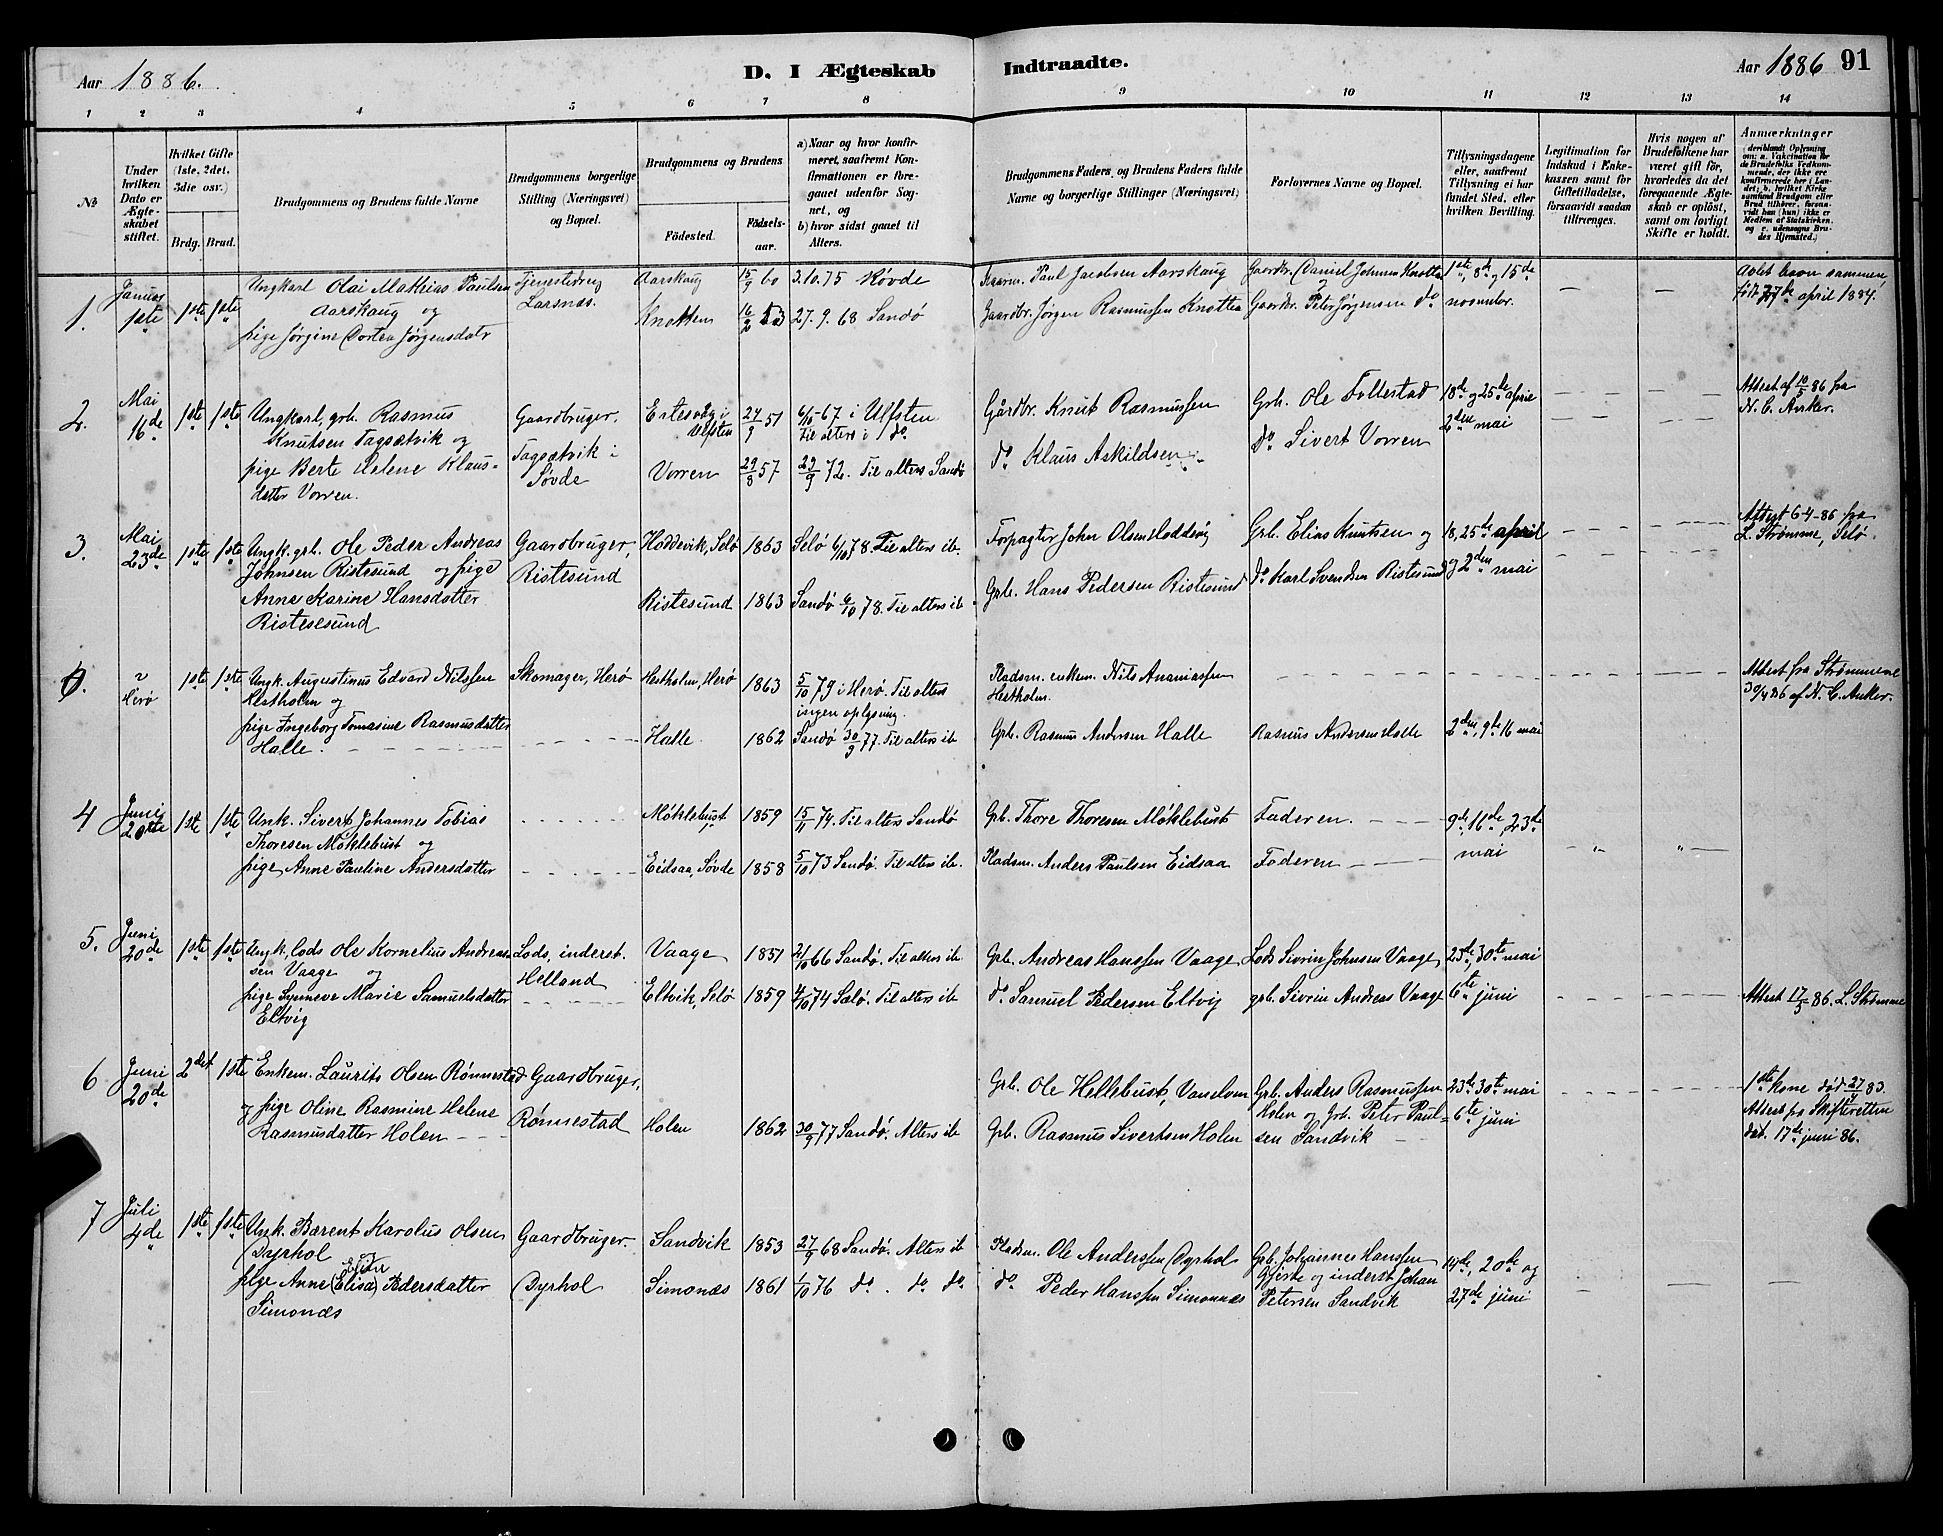 Aar 1886.
D. I Ægteskab
Indtraadte.
Aar 1886
91
1
2
3
4
5
6
7
8
9
10
11
12
13
14
No
Under hvilken Dato er Ægteskabet stiftet.
Hvilket Gifte (1ste, 2det, 3die osv.)
Brdg.
Brud.
Brudgommens og Brudens fulde Navne
Brudgommens borgerlige Stilling (Næringsvei) og Bopæl.
Brudgommens og Brudens
Födested.
Födselsaar.
a) Naar og hvor konfirmeret, saafremt Konfirmationen er foregaaet udenför Sognet, og
b) hvor sidst gaaet til Alters.
Brudgommens Faders og Brudens Faders fulde Navne og borgerlige Stillinger (Næringsvei)
Forlovernes Navne og Bopæl.
Tillysningsdagene eller, saafremt Tillysning ei har fundet Sted, efter hvilken Bevilling.
Legitimation for Indskud i Enkekassen samt för Giftetilladelse, forsaavidt saadan tiltrænges.
Hvis nogen af Brudefolkene har været gift för, hvorledes da det foregaaende Ægteskab er oplöst, samt om lovligt Skifte er holdt.
Anmærkninger (deriblandt Oplysning om: a. Vakcination for de Brudefolks Vedkommende, der ikke ere konfirmerede her i Landet; b. hvilket Kirkesamfund Brudgom eller Brud tilhörer, forsaavidt han (hun) ikke er Medlem af Statskirken, og c. udensogns Brudes Hjemsted.)
1.
Januar 1ste
1ste 1ste
Ungkarl Olai Mathias Paulsen
Aarskaug og
pige Jørgine Dortea Jørgensdatr
Tjenestedreng
Larsnæs.
Aarskaug 15/9 60 3.10.75 Røvde
Knotten 16/2 53 27.9.68 Sandø
Paul Jacobsen Aarskaug
Gaardbr. Jørgen Rasmussen Knotten
Gaardbr. Daniel Johnsen Knotten
Gaardbr. Peter Jørgensen do
1ste, 8de og 15de
novembr.
Avlet barn sammen
født 27de april 1884.
2.
Mai 16de
1ste 1ste
Ungkarl, grb. Rasmus
Knutsen Tagsætvik og
pige Berte Helene Klaus=
datter Vorren.
Gaardbruger.
Tagsætvik i
Søvde
Ertesvåg i
Ulfsten 24/9 51 6/10-67 i Ulfsten
Til alters i do
Vorren 29/8 57 29/9 72. Til alters Sandø
Gårdbr. Knut Rasmussen
do Klaus Askildsen
Grb. Ole Follestad
do Sivert Vorren
18de og 25de april
2den mai
Attest af 10/5 86 fra
N. C. Anker.
3.
Mai 23de
1ste 1ste
Ungk. grb. Ole Peder Andreas
Johnsen Ristesund og pige
Anne Karine Hansdatter
Ristesund
Gaardbruger,
Ristesund
Hoddevik, Selø 1863 Selø 6/10 78. Til alters ib.
Ristesund 1863 Sandø 6/10 78. Til alters ib.
Forpagter John Olsen Hoddevig
Grb. Hans Pedersen Ristesund
Grb. Elias Knutsen og
do Karl Svendsen Ristesund
18, 25de april
og 2den mai
Attest 6 4-86 fra
L. Strømme, Selø.
0.
" Herø
1ste 1ste
Ungk. Augustinus Edvard Nilssen
Hestholm og
pige Ingeborg Tomasine Rasmusdatter
Halle.
Skomager, Herø
Hestholm, Herø 1863 5/10 79 i Herø. Til alters
ingen oplysning.
Halle 1862 Sandø 30/9 77. Til alters ib
Pladsm. enkem. Nils Ananiassen
Hestholm.
Grb. Rasmus Andersen Halle
Rasmus Andersen Halle
2den, 9de 16 mai
Attest fra Strømmene
30/4 86 af N. C. Anker.
4
Juni 20de
1ste 1ste
Unk. Sivert Johannes Tobias
Thoresen Møklebust og
pige Anne Pauline Andersdatter
Møklebust 1859 15/11 74. Til alters Sandø
Eidsaa, Søvde 1858 5/10 73 Sandø. Til alters ib.
Grb. Thore Thoresen Møklebust
Pladsm. Anders Paulsen Eidsaa
Faderen.
Faderen
9de, 16de, 23de
mai
5.
Juni 20de
1ste 1ste
Ungk. Lods Ole Kornelius Andreas=
sen Vaage og
pige Synneve Marie Samuelsdatter
Eltvig
Lods, inderst.
Helland
Vaage 1851 21/10 66 Sandø. Til alters ib
Eltvik, Selø 1859 4/10 74 Sælø. Til alters ib
Grb. Andreas Hanssen Vaage
do Samuel Pedersen Eltvig
Lods Sivrin Johnsen Vaage,
grb. Sivrin Andreas Vaage
23de, 30te mai
6te juni
Attest 17/5 86. L. Strømme
6
Juni 20de
2det 1ste
Enkem. Laurits Olsen Rønnestad
og pige Oline Rasmine Helene
Rasmusdatter Holen
Gaardbruger,
Rønnestad
Holen 1862 30/9 77 Sandø. Alters ib
Grb. Ole Hellebust, Vanelven
Grb. Rasmus Sivertsen Holen
Grb. Anders Rasmussen
Holen og Grb. Peter Paul=
sen Sandvik
23de 30te mai
6te juni
1ste kone død 27/4 83.
Attest fra Skifteretten
dat. 17de juni 86.
7
Juli 4de
1ste 1ste
Unk. Bærent Karolus Olsen
Dyrhol og
pige Anne (Elisa) Pedersdatter
Simonæs
Gaardbruger.
Dyrhol
Sandvik 1853 27/9 68 Sandø. Alters ib
Simonæs 1861 1/10 76 do. do do.
Pladsm. Ole Anderssen Dyrhol
do Peder Hanssen Simonnæs
Grb. Johannes Hanssen
Gjerde og inderst Johan
Petersen Sandvik
14de, 20de og
27de juni